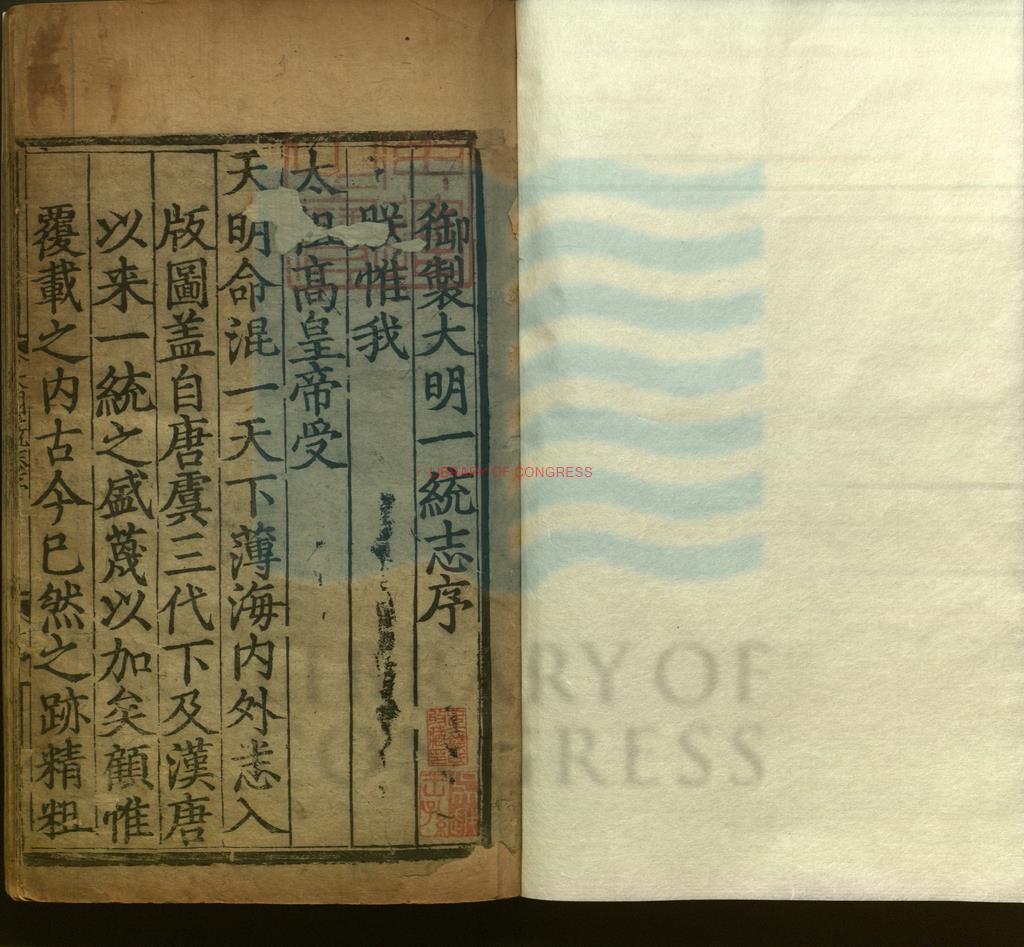 御製大明一統志序
朕惟我
太祖高皇帝受
天明命混一天下薄海內外悉入
版圖盖自唐虞三代下及漢唐
以来一統之盛蔑以加矣顧惟
覆載之内古今已然之跡精粗
LIBRARY OF CONGRESS
LIBRARY OF
CONGRESS